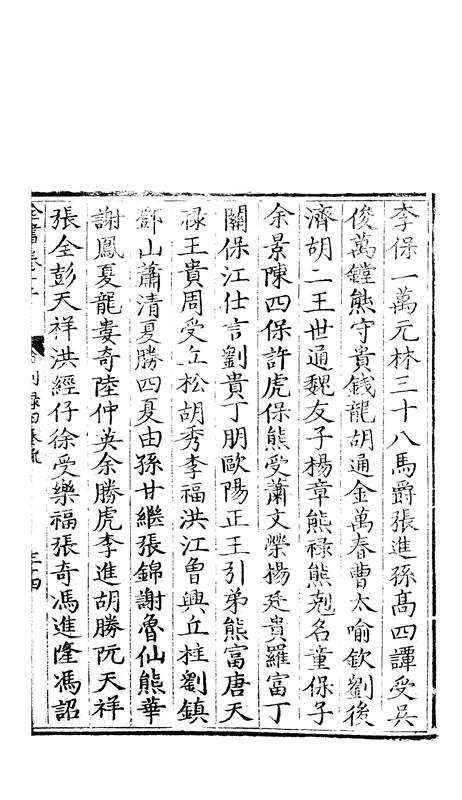 李保一萬元林三十八馬爵張進孫髙四譚受吳
俊萬鏜熊守貴錢龍胡通金萬春曹太喻欽劉後
濟胡二王世通魏友子楊章熊祿熊剋名童保子
余景陳四保許虎保熊受蕭文榮揚廷貴羅富丁
關保江仕言劉貴丁朋歐陽正王引弟熊富唐天
祿王貴周受丘松胡秀李福洪江魯興丘柱劉鎮
鄧山蕭清夏勝四夏由孫甘繼張錦謝魯仙熊華
謝鳳夏龍婁奇陸仲英余勝虎李進胡勝阮天祥
張全彭天祥洪經仔徐受樂福張奇馮進隆馮詔
全書卷十 三十四